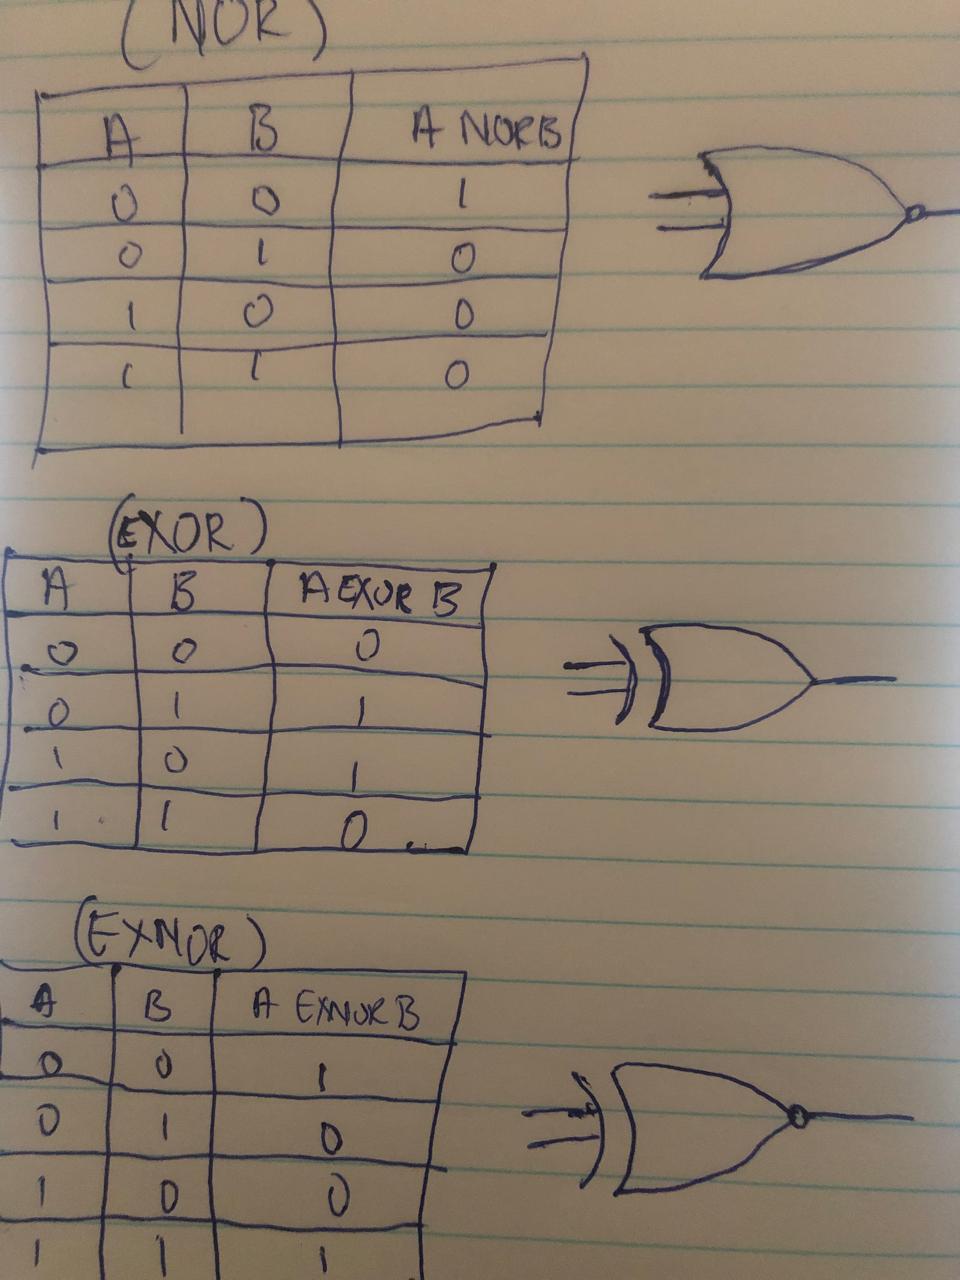 (NOR)
A B A NOR B
0 0 1
0 1 0
1 0 0
1 1 0
(EXOR)
A B A EXOR B
0 0 0
0 1 1
1 0 1
1 1 0
(EXNOR)
A B A EXNOR B
0 0 1
0 1 0
1 0 0
1 1 1